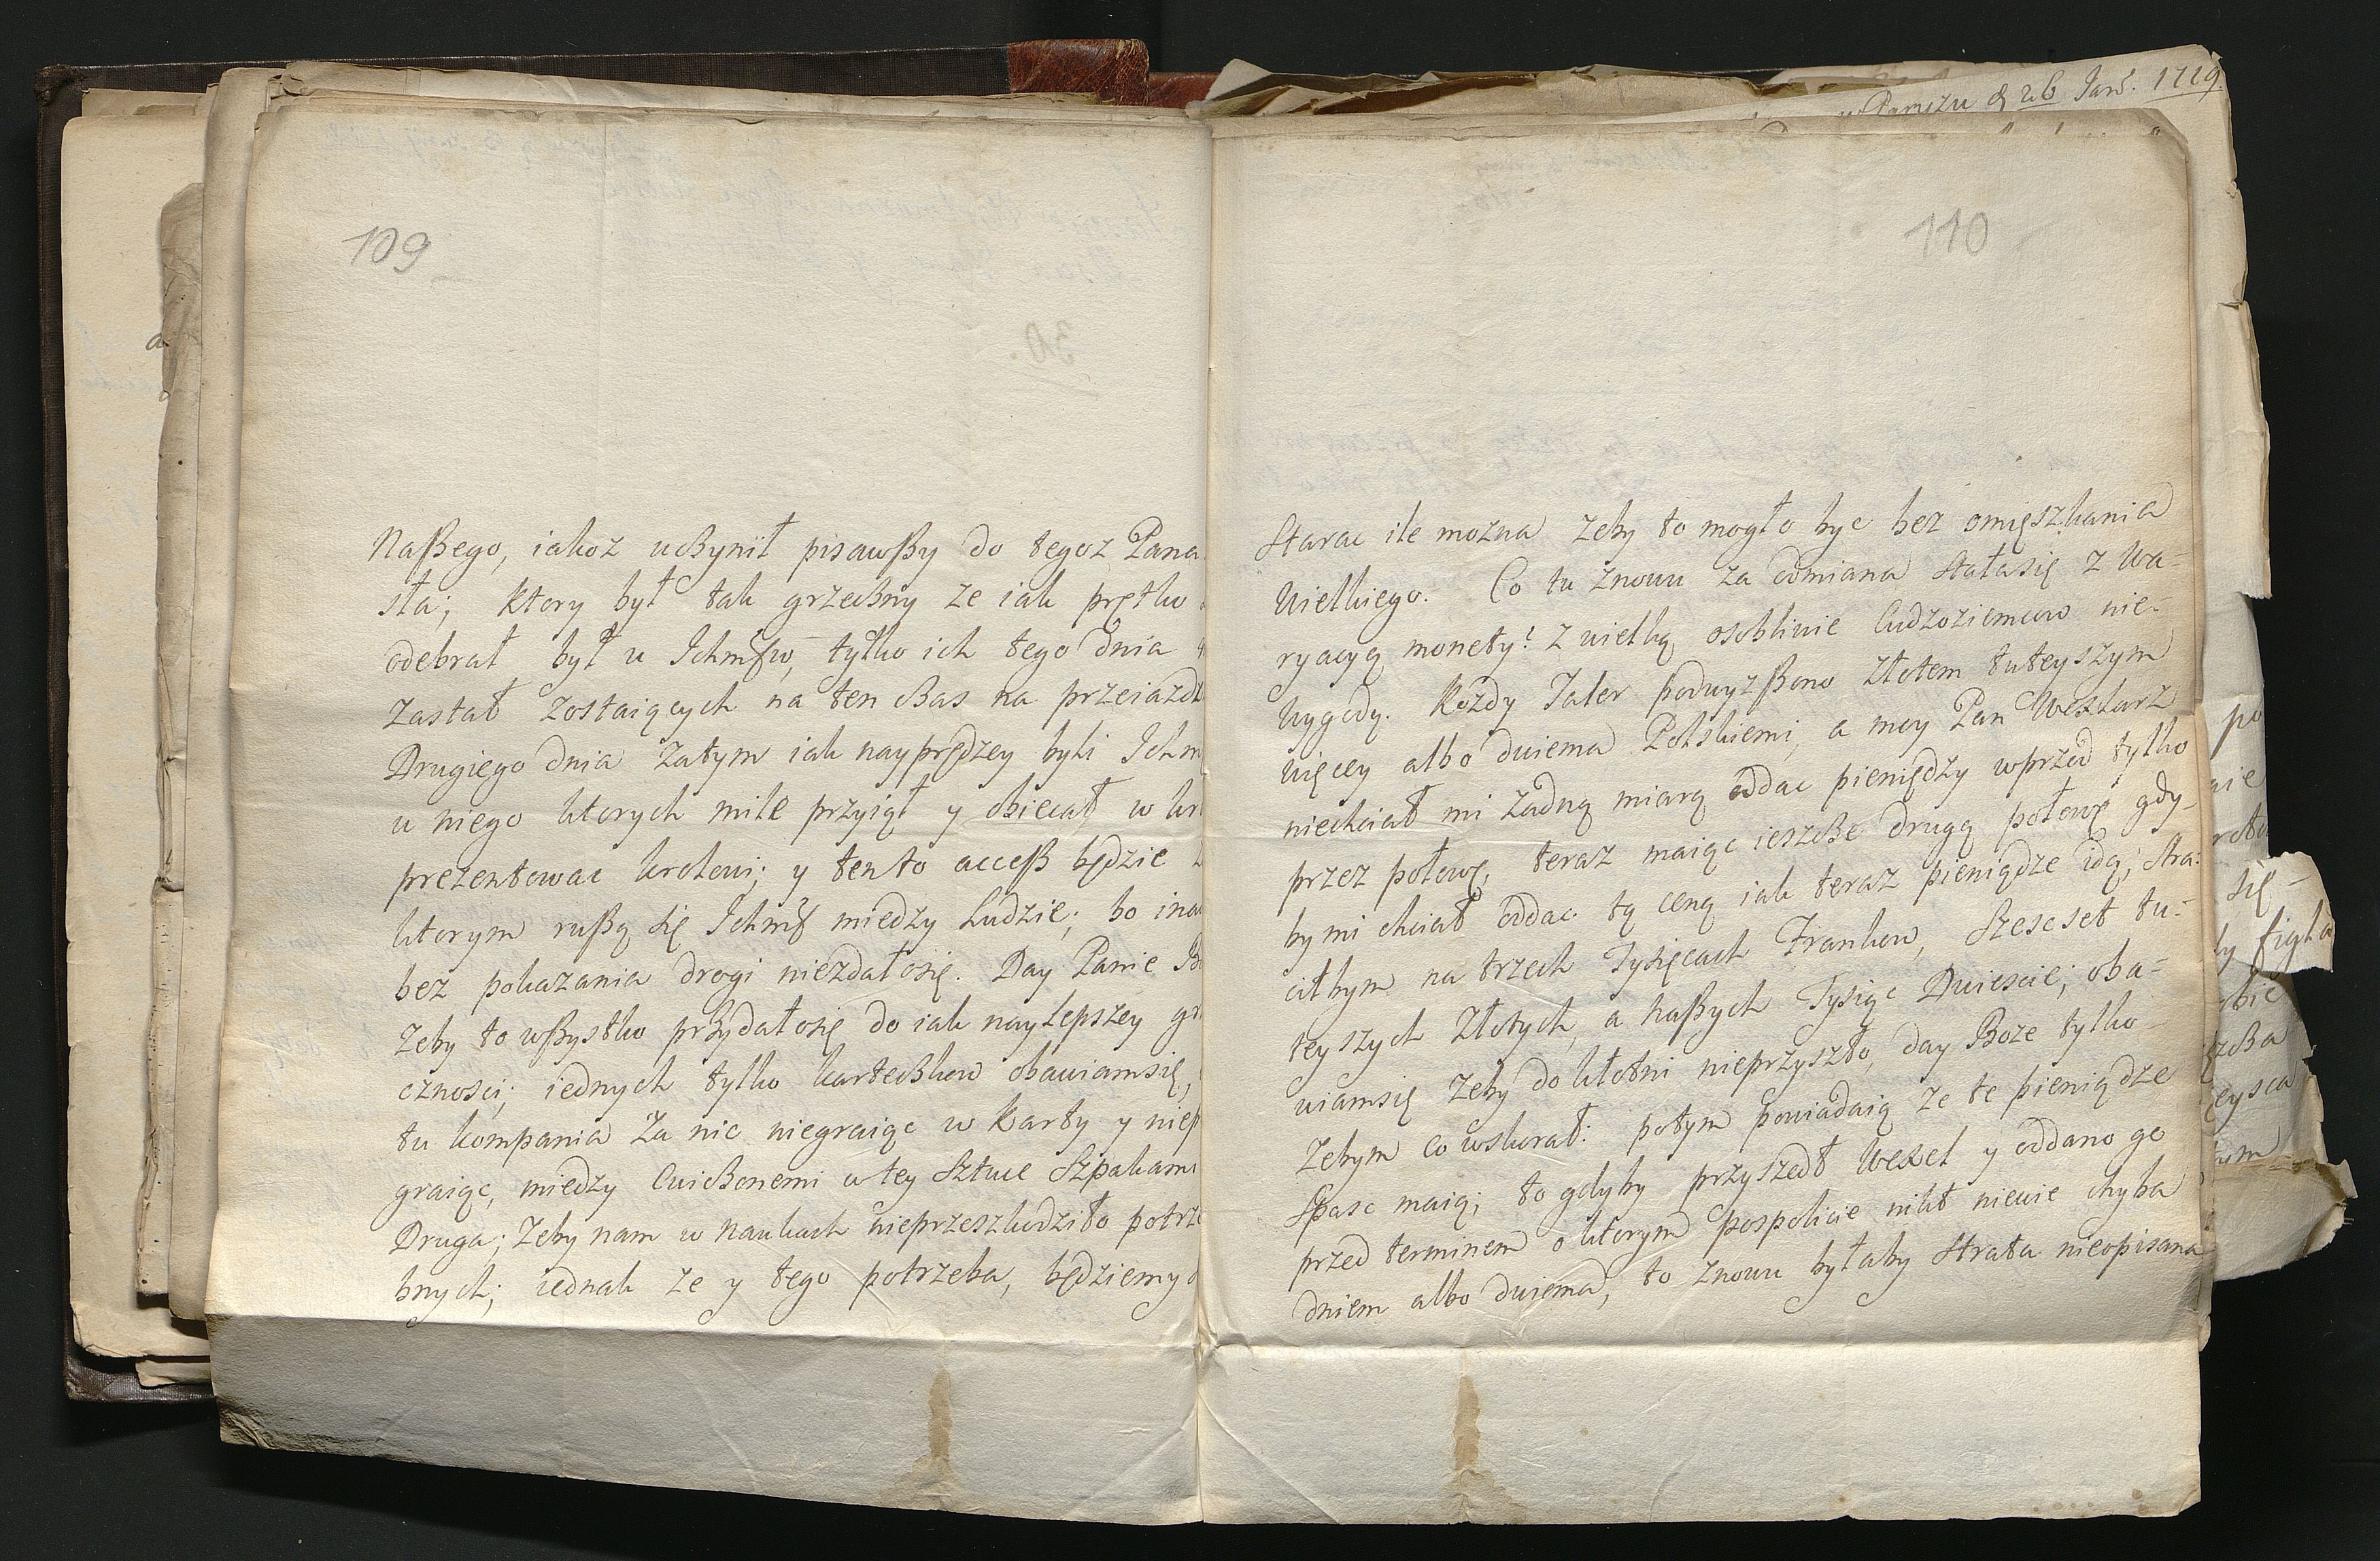 109
Naßego, iakoz uczynił pisawßy do tegoz Pana
sta; ktory był tak grzeczny ze iak prętko
odebrał był u Ichmſw, tylko ich tego dnia
zastał zostaiących na ten czas na przeiazd
Drugiego dnia zatym iak nayprędzey byli Ichm
u niego ktorych mile przyiął y obiecał w kr
prezentowac krolowi; y ten to acceß będzie
ktorym rußą się Ichmſ miedzy Ludzie; bo ina
bez pokazania drogi niezdałosię. Day Panie Bo
Zeby to wßystko przydałosię do iak naylepszey gr
cznosci; iednych tylko karteczkow obawiamsię,
tu kompania Za nic niegraiąc w Karty y niep
graiąc, miedzy Cwiczonemi w tey Sztuce Szpakami
Druga; Zeby nam w naukach nieprzeszkodziło potrze
bnych; iednak ze y tego potrzeba, będziemy
w Paryzu d 26 Jan. 1729.
110
Starac ile mozna zeby to mogło byc bez omięszkania
Wielkiego. Co tu znowu za odmiana Stałasię z Wa-
ryacyą monety? z wielką osobliwie Cudzoziemcow nie-
wygody. Kozdy Taler podwyzßono Złotem tuteyszym
więcey albo dwiema Polskiemi, a moy Pan Wexlarz
niechciał mi zadną miarą oddac pieniędzy wprzod tylko
przez połowę, teraz maiąc ieszcze drugą połowę gdy-
by mi chciał oddac tą ceną iak teraz pieniądze idą, stra-
ciłbym na trzech Tysięcach Frankow, Szescset tu-
teyszych Złotych, a naßych Tysiąc Dwiescie; oba-
wiamsię Zeby do kłotni nieprzyszło, day Boze tylko
Zebym co wskorał: potym powiadaią ze te pieniądze
Spasc maią; to gdyby przyszedł Wexel y oddano go
przed terminem o ktorym pospolicie nikt niewie chyba
dniem albo dwiema, to znowu byłaby Strata nieopisana
się
figla